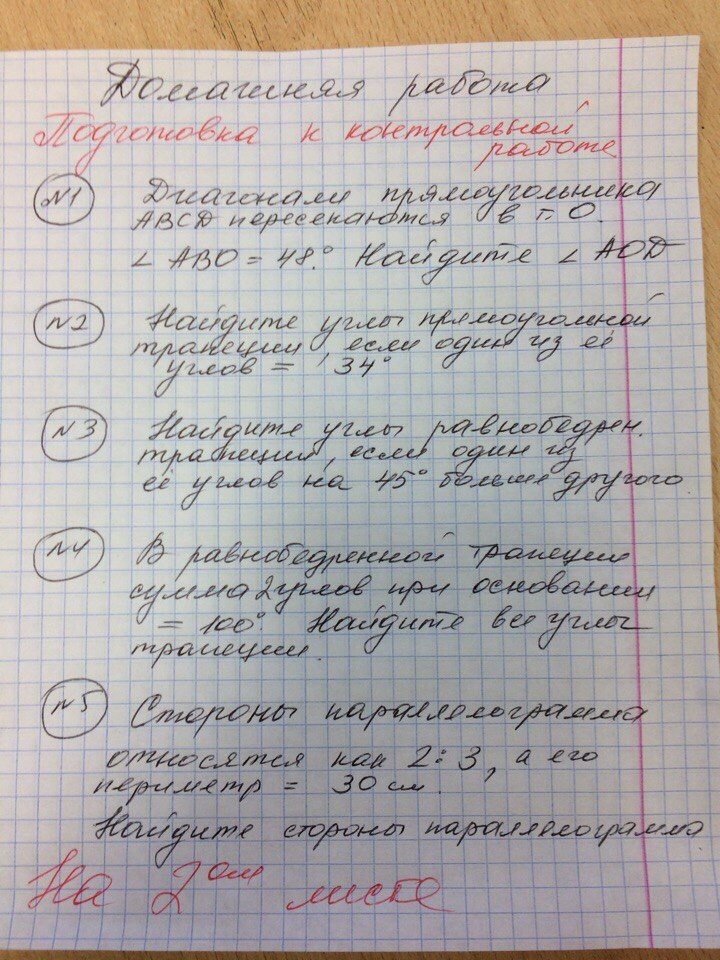 Домашняя работа
Подготовка к контрольной
работе
№1 Диагонали прямоугольника
ABCD пересекаются в т. О.
∠ ABO = 48°. Найдите ∠ AOD
№2 Найдите углы прямоугольной
трапеции, если один из её
углов = 34°
№3 Найдите углы равнобедрен.
трапеции, если один из
её углов на 45° больше другого
№4 В равнобедренной трапеции
сумма 2 углов при основании
= 100°. Найдите все углы
трапеции.
№5 Стороны параллелограмма
относятся как 2:3, а его
периметр = 30 см.
Найдите стороны параллелограмма
На 2ом листе